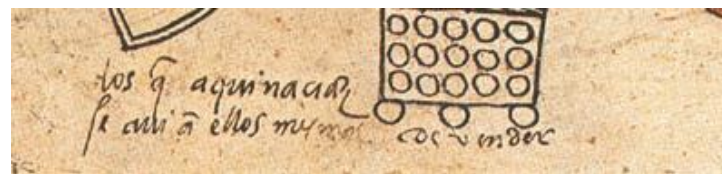 los q̃ aquinacian
se auiã ellos mismos de vender